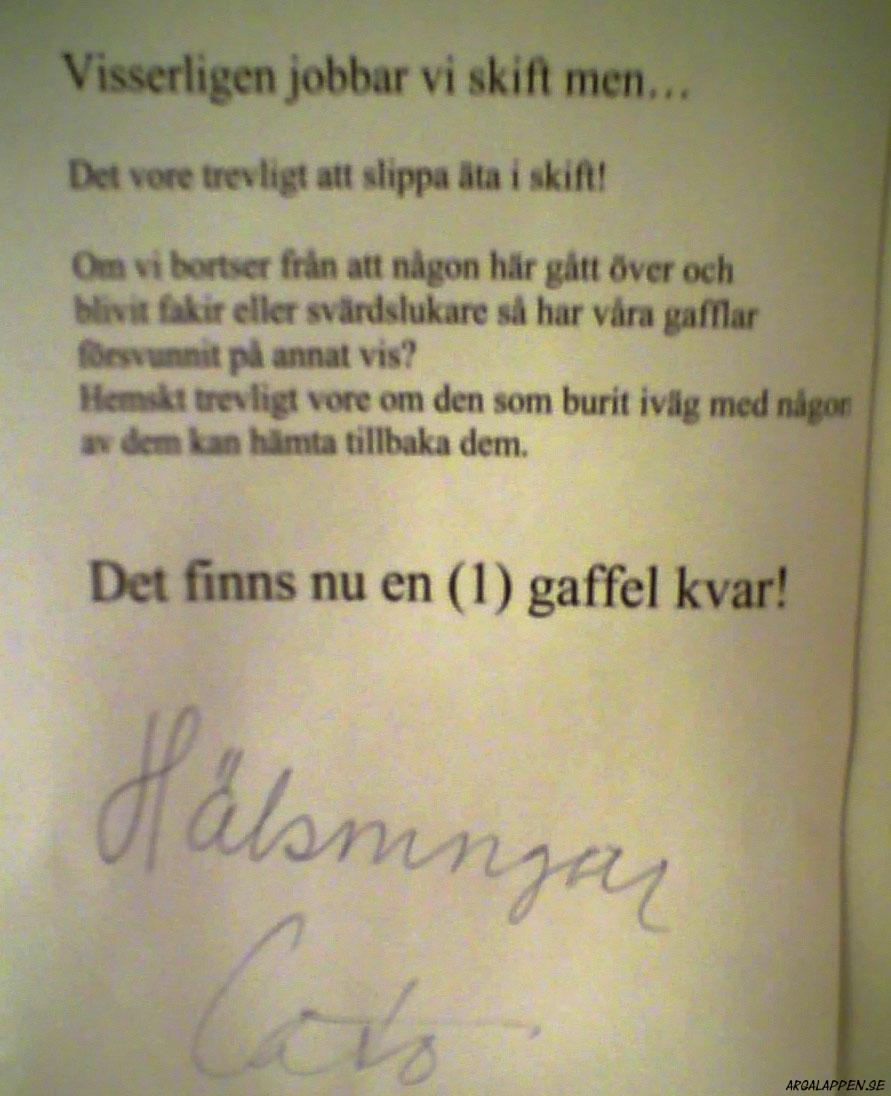 Visserligen jobbar vi skift men...
Det vore trevligt att slippa äta i skift!
Om vi bortser från att någon här gått över och
blivit fakir eller svärdslukare så har våra gafflar
försvunnit på annat vis?
Hemskt trevligt vore om den som burit iväg med någon
av dem kan hämta tillbaka dem.
Det finns nu en (1) gaffel kvar!
Hälsningar
Cato
ARGALAPPEN.SE